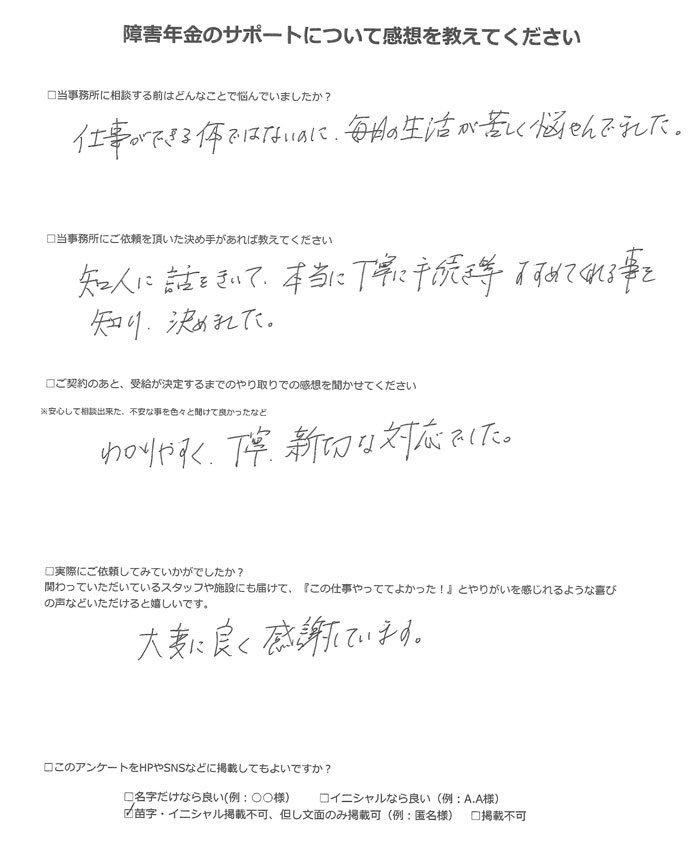 障害年金のサポートについて感想を教えてください
□当事務所に相談する前はどんなことで悩んでいましたか？
仕事ができる体ではないのに、毎日の生活が苦しく悩やんでました。
□当事務所にご依頼を頂いた決め手があれば教えてください
知人に話をきいて、本当に丁寧に手続き等すすめてくれる事を
知り、決めました。
□ご契約のあと、受給が決定するまでのやり取りでの感想を聞かせてください
※安心して相談出来た、不安な事を色々と聞けて良かったなど
わかりやすく、丁寧、新切な対応でした。
□実際にご依頼してみていかがでしたか？
関わっていただいているスタッフや施設にも届けて、『この仕事やっててよかった！』とやりがいを感じれるような喜び
の声などいただけると嬉しいです。
大変に良く感謝しています。
□このアンケートをHPやSNSなどに掲載してもよいですか？
□名字だけなら良い(例：○○様） □イニシャルなら良い（例：A.A様）
☑苗字・イニシャル掲載不可、但し文面のみ掲載可（例：匿名様） □掲載不可